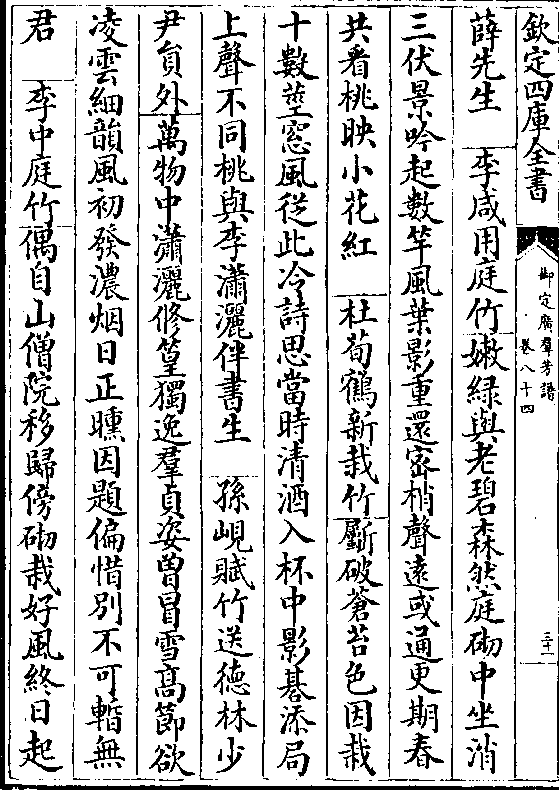 欽定四庫全書
御定廣羣芳譜
卷八十四
三十
薛先生 李咸用庭竹嫩緑與老碧森然庭砌中坐消
三伏景吟起數竿風葉影重還密梢聲遠或通更期春
共看桃映小花紅 杜荀鶴新栽竹劚破蒼苔色因栽
十數莖窓風從此冷詩思當時清酒入杯中影碁添局
上聲不同桃與李瀟灑伴書生 孫峴賦竹送德林少
尹貟外萬物中瀟灑修篁獨逸羣貞姿曽冒雪高節欲
凌雲細韻風初發濃烟日正曛因題偏惜别不可暫無
君 李中庭竹偶自山僧院移歸傍砌栽好風終日起